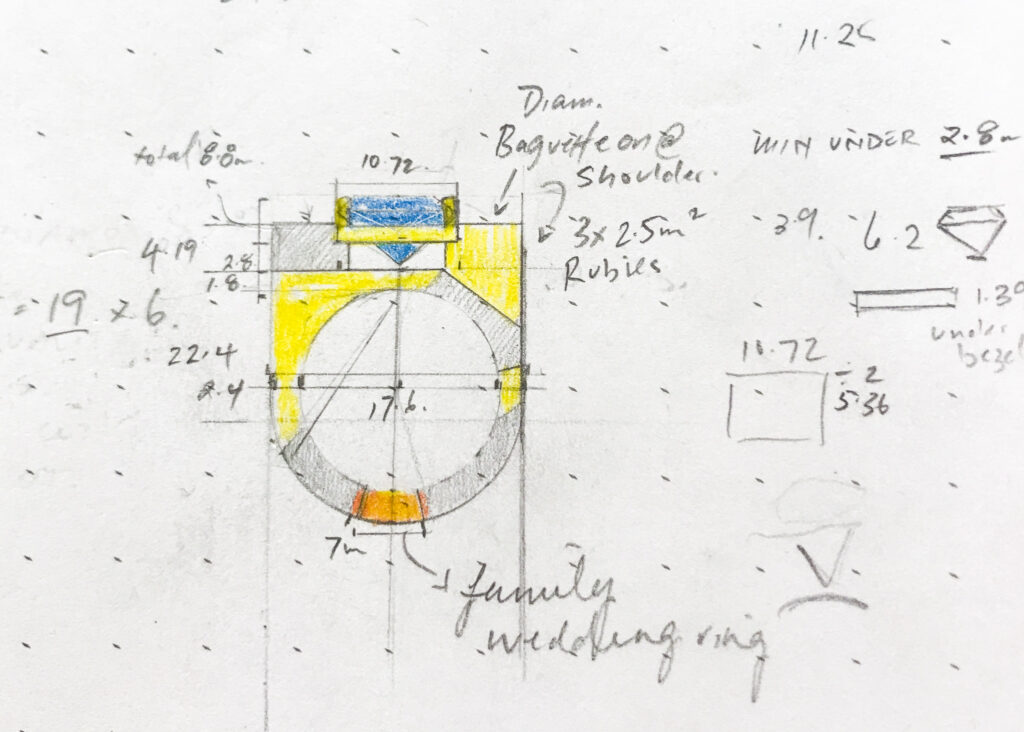 11.25
Diam.
Baguette on @
Shoulder.
total 8.8m.
10.72
MIN UNDER 2.8m
3 x 2.5m²
Rubies
3.9. 6.2
4.19
2.8
1.8
= 19 x 6.
1.30
under
bezel
22.4
2.4
17.6.
10.72
÷ 2
5.36
7m
family
wedding ring